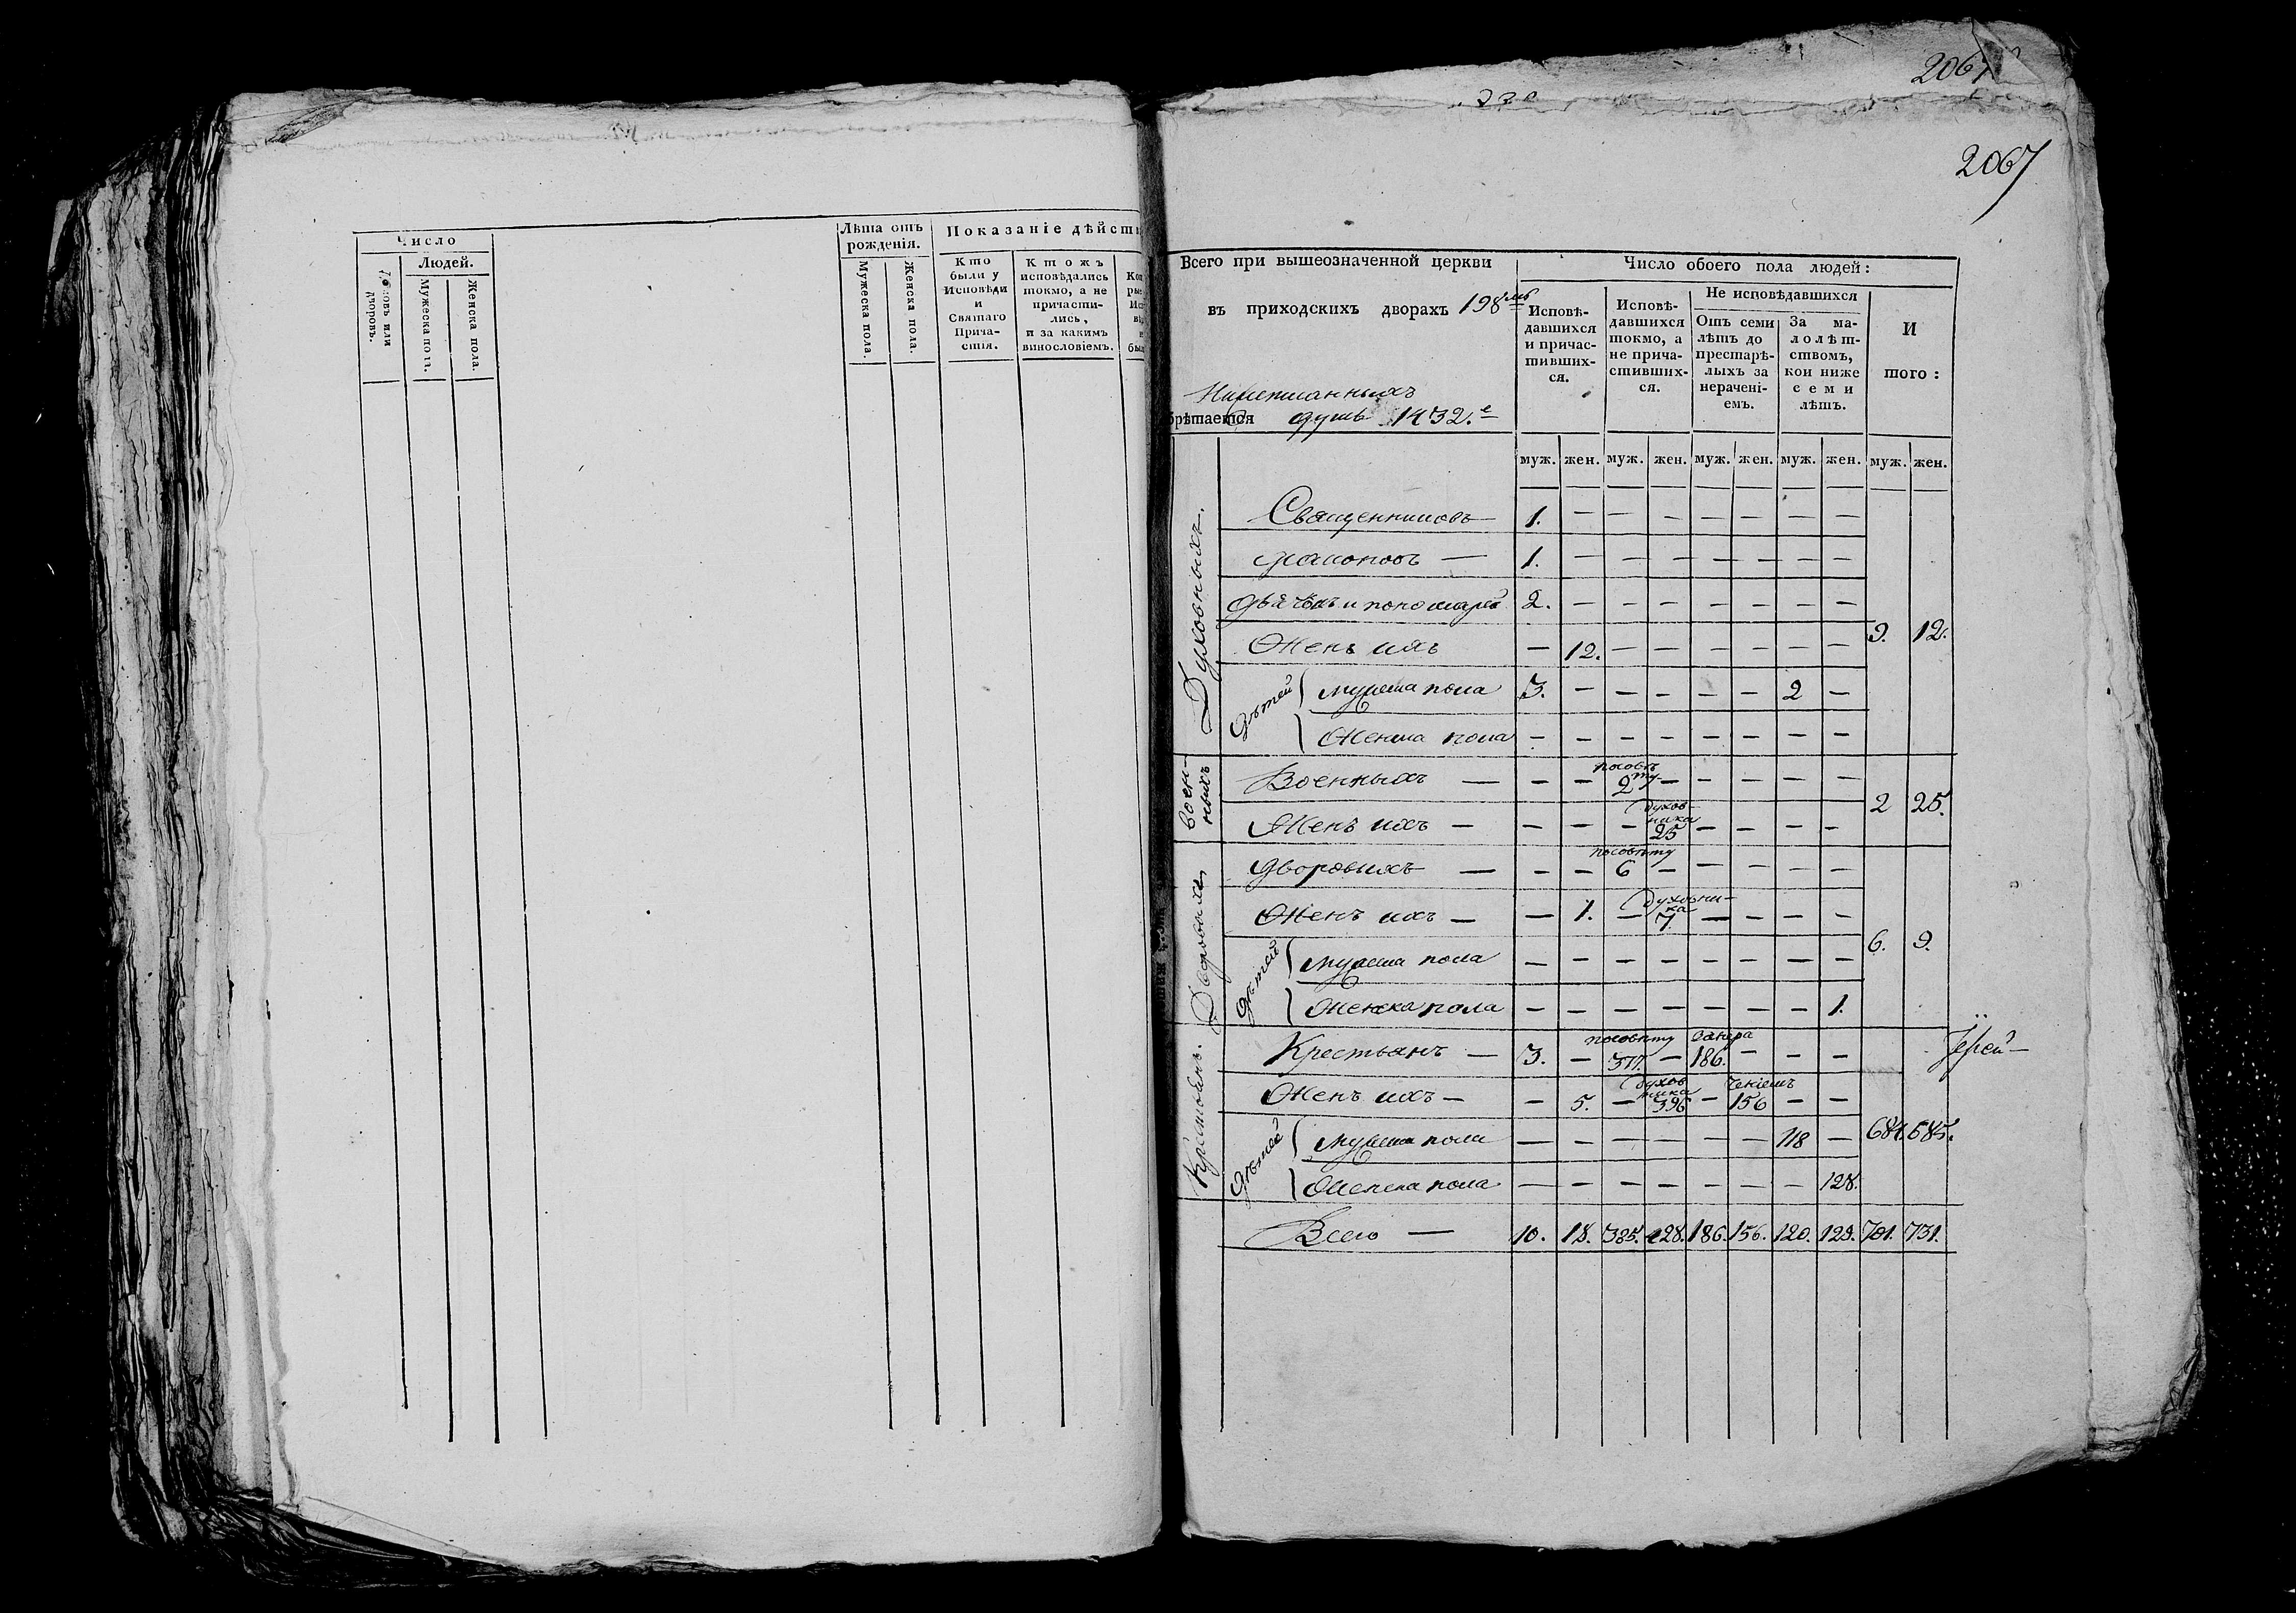 2067
2067
Число
Людей.
Мужеска пола.
Женска пола.
дворовъ.
Лѣта отъ
рожденія.
Мужеска пола.
Женска пола.
Показаніе дѣйст
Кто
были у
Исповѣди
и
Святаго
Прича-
стія.
Ктожъ
исповѣдались
токмо, а не
причасти-
лись,
и за какимъ
винословіемъ.
Всего при вышеозначенной церкви
въ приходскихъ дворахъ 198мъ
брѣтается душъ 1432.е
Число обоего пола людей:
Исповѣ-
давшихся
и причас-
тивших-
ся.
Исповѣ-
давшихся
токмо, а
не прича-
стивших-
ся.
Не исповѣдавшихся
Отъ семи
лѣтъ до
престарѣ-
лыхъ за
нерачені-
емъ.
За ма-
лолѣт-
ствомъ,
кои ниже
семи
лѣтъ.
И
того:
муж. жен. муж. жен. муж. жен. муж. жен. муж. жен.
Духовныхъ.
Священниковъ — 1. — — — — — — —
Діаконовъ — 1. — — — — — — —
Дьячковъ и пономарей 2. — — — — — — —
Женъ ихъ — 12. — — — — — — 9. 12.
Дѣтей
мужеска пола 3. — — — — — 2 —
Женска пола — — — — — — — —
Воен-
ныхъ
Военныхъ — — — по совѣту 2 — — — — —
Женъ ихъ — — — — духовника 25 — — — — 2 25.
Дворовыхъ
Дворовыхъ — — — по совѣту 6 — — — — —
Женъ ихъ — — 1. — духовника 7 — — — —
Дѣтей
мужеска пола — — — — — — — — 6. 9.
Женска пола — — — — — — — 1.
Крестьянъ.
Крестьянъ — 3. — по совѣту 377. — за нера 186. — — —
Женъ ихъ — — 5. — духовника 396 — ченіемъ 156 — —
Дѣтей
мужеска пола — — — — — — 118 — 684. 685.
Женска пола — — — — — — — 128.
Всего — 10. 18. 385. 428. 186. 156. 120. 129. 701. 731.
Іерей—